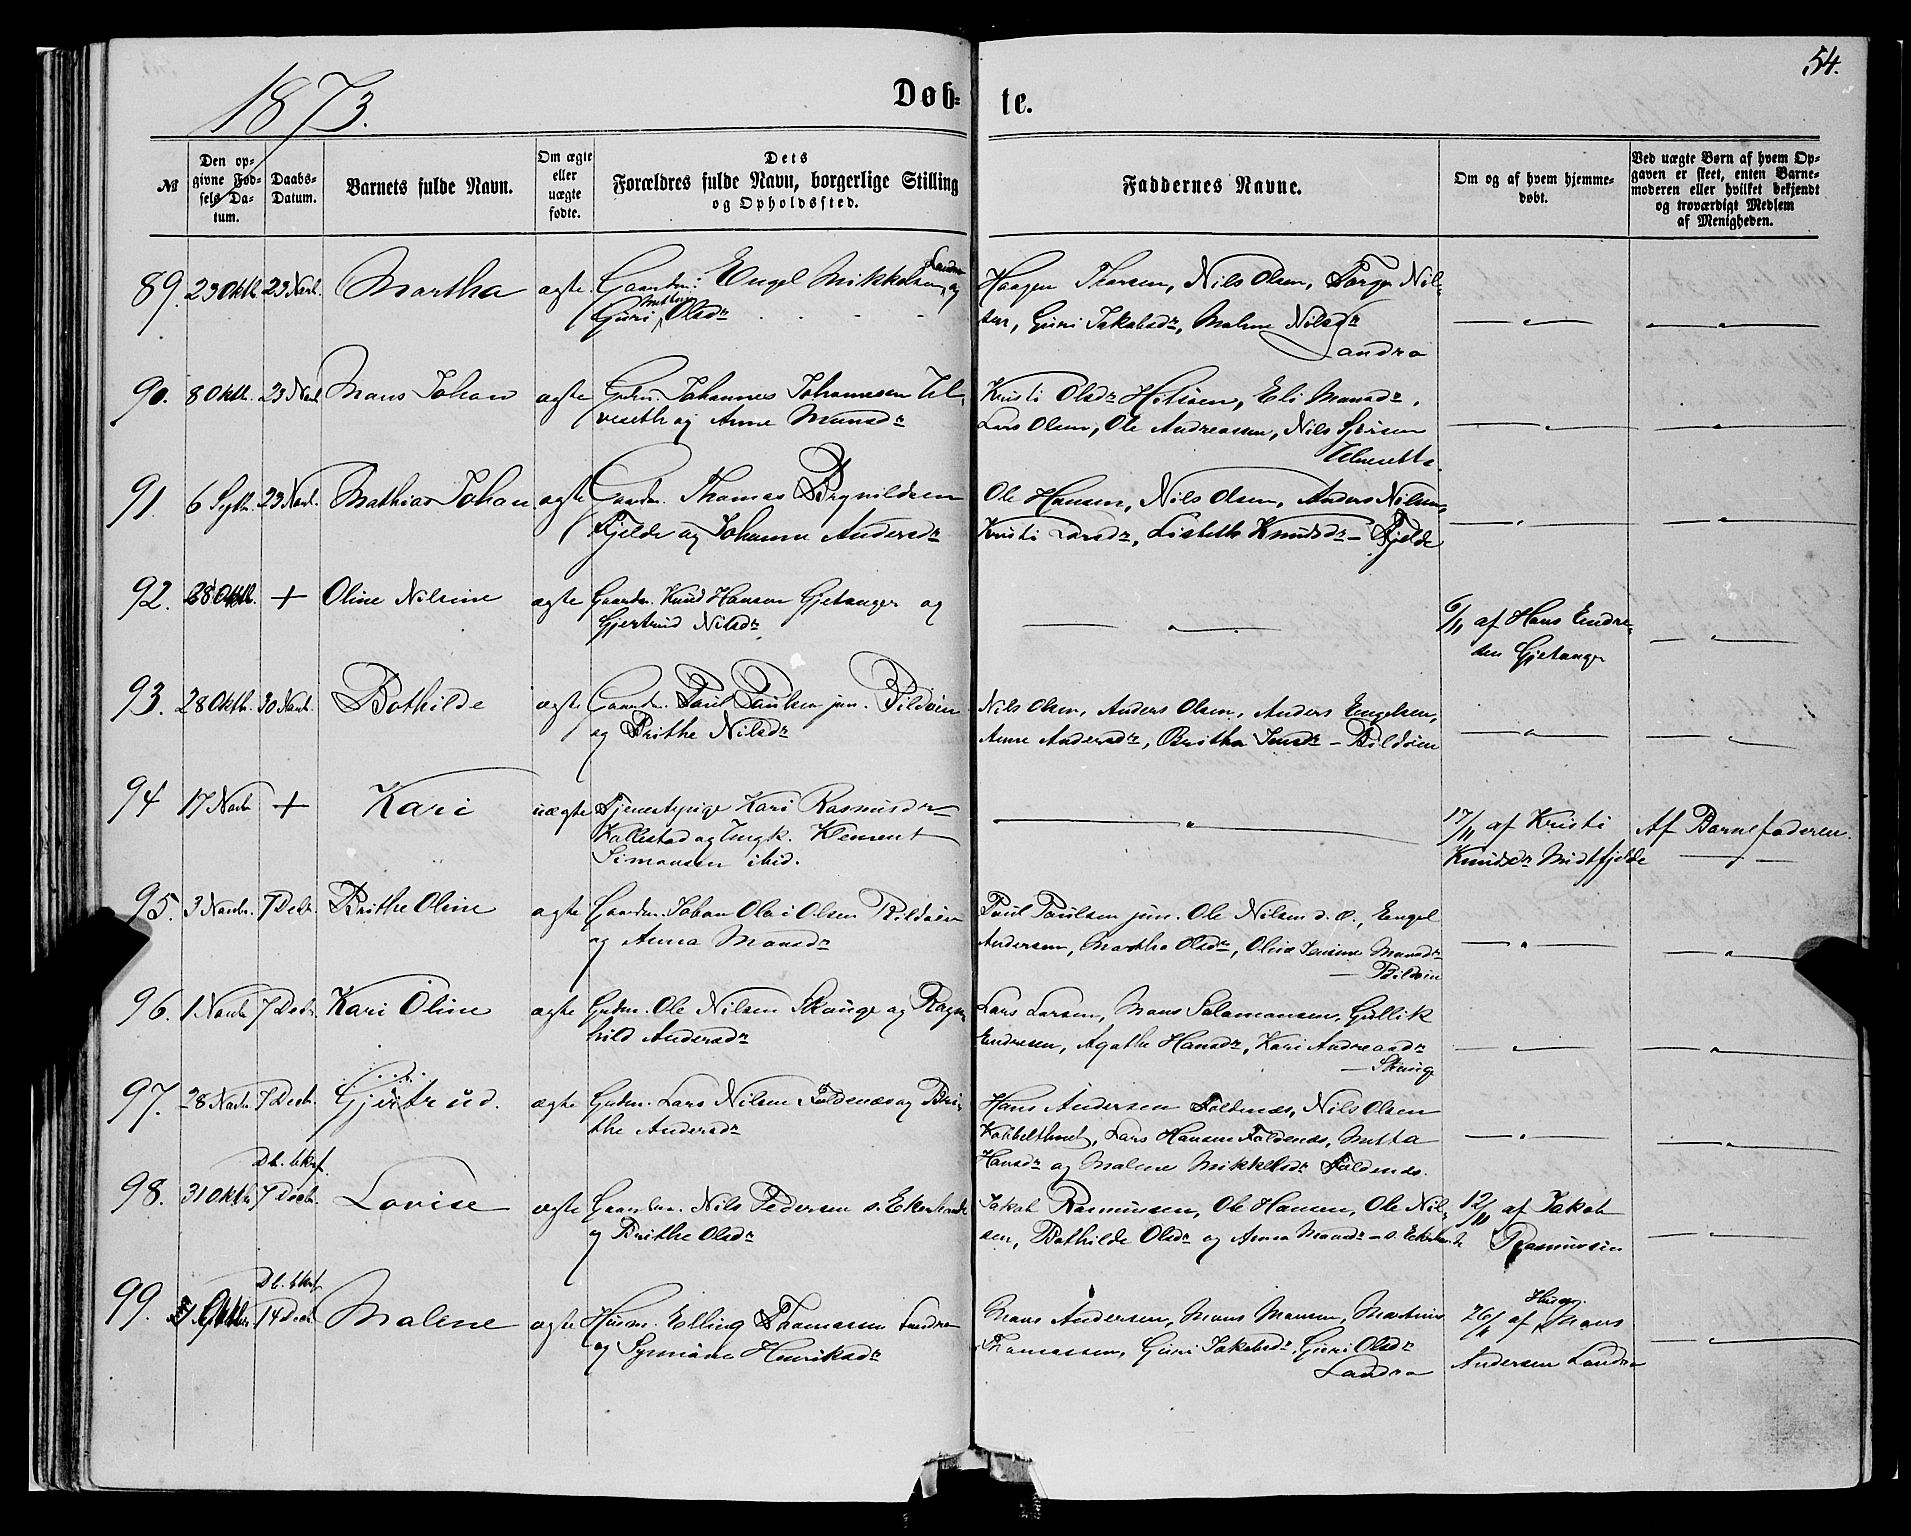 1873.
Døb-
te.
54.
№
Den op-
givne Fød-
sels Da-
tum.
Daabs-
Datum.
Barnets fulde Navn.
Om ægte
eller
uægte
fødte.
Dets
Forældres fulde Navn, borgerlige Stilling
og Opholdssted.
Faddernes Navne.
Om og af hvem hjemme-
døbt.
Ved uægte Børn af hvem Op-
gaven er skeet, enten Barne-
moderen eller hvilket bekjendt
og troværdigt Medlem
af Menigheden.
89. 23 Oktb. 23 Novb. Martha ægte Gaardm. Engel Mikkelsen Landro og
Guri Olsdr
Haagen Thorsen, Nils Olsen, Nil-
sen, Guri Jakobsdr, Malene Nilsdr
Landro
90. 8 Oktb. 23 Novb. Mons Johan ægte Gdm. Johannes Johannessen Ul-
veseth og Anne Monsdr
Kristi Olsdr, Eli Monsdr,
Lars Olsen, Ole Andreassen, Nils
Ulvesetter
91. 6 Septb. 23 Novb. Mathias Johan ægte Gaardm. Thomas Brynildsen
Fjelde og Johanne Andersdr
Ole Hansen, Nils Olsen, Anders Nilsen,
Kristi Larsdr, Lisbeth Knudsdr — Fjelde
92. 28 Oktb. + Oline Nilsine ægte Gaardm. Knud Hansen Gjetanger og
Gjertrud Nilsdr
6/11 af Hans Endre-
sen Gjetanger
93. 28 Oktb. 30 Novb. Bothilde ægte Gaardm. Paul Paulsen jun. Bildøen
og Brithe Nilsdr
Nils Olsen, Anders Olsen, Anders Engelsen,
Anne Andersdr, Britha Jensdr — Bildøen
94 17 Novb + Kari uægte Tjenestepige Kari Rasmusdr
Kallestad og Ungk. Klement
Simonsen ibid.
17/11 af Kristi
Knudsdr Midtfjelde
Af Barnefaderen.
95. 3 Novbr. 7 Decbr. Brithe Oline ægte Gaardm. Johan Olai Olsen Bildøen
og Anna Monsdr
Paul Paulsen jun. Ole Nilsen d. æ., Engel
Andersen, Martha Olsdr, Olina Jensine Monsdr
— Bildøen
96. 1 Novb 7 Decbr. Kari Oline ægte Gdm. Ole Nilsen Skauge og Ragn-
hild Andersdr
Lars Larsen, Mons Salamonsen, Gullik
Endresen, Agathe Hansdr, Kari Andreasdr
— Skauge
97. 28 Novb. 7 Decbr. Gjertrud. ægte Gdm. Lars Nilsen Foldenæs og Bri-
the Andersdr
Hans Andersen Foldnæs, Nils Olsen
Kobbeltvedt, Lars Hansen Foldenæs, Mitta
Hansdr og Malene Mikkelsdr Foldenæs.
98. 31 Oktb Db. bkrf. 7 Decbr. Lovise ægte Gaardm. Nils Pedersen
og Brithe Olsdr
Jakob Rasmussen, Ole Hansen, Ole Nil-
sen, Bothilde Olsdr og Anna Monsdr
12/11 af Jakob
Rasmussen
99. Oktbr. Db. bkrf. 14 Decbr. Malene ægte Husm. Elling Thomassen Landro
og Synnøve Henriksdr
Mons Andersen, Mons Monsen, Martinus
Thomassen, Guri Jakobsdr, Guri Olsdr
Landro
26/11 af Husm. Mons
Andersen Landro